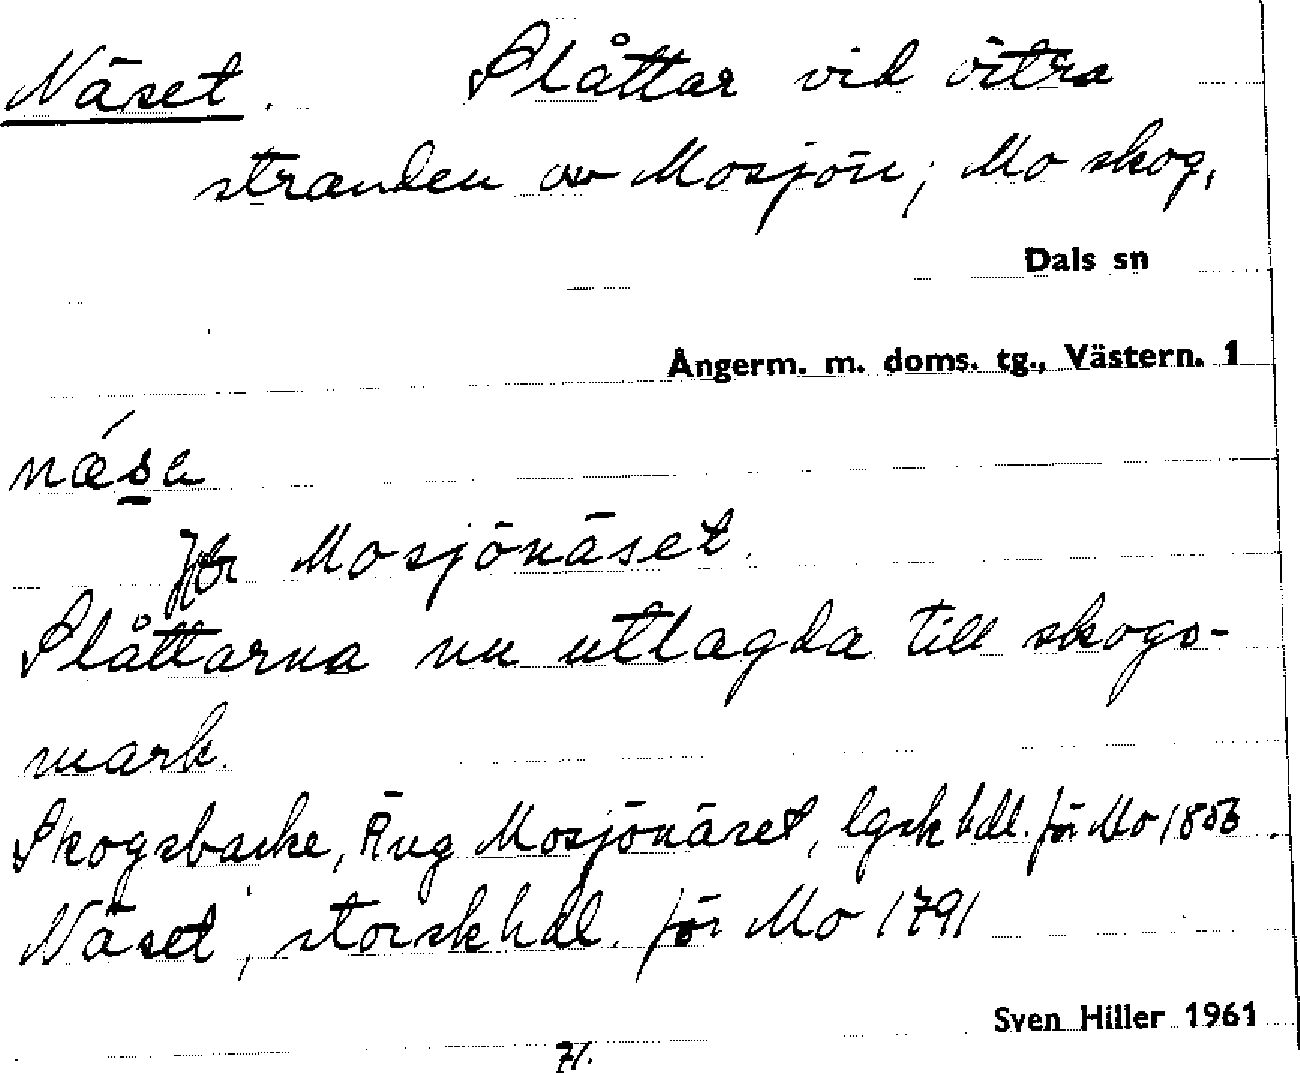 Näset. Slåttar vid östra
stranden av Mosjön; Mo skog,
Dals sn
Ångerm. m. doms. tg., Västern. 1
næ´sa
Jfr Mosjönäset.
Slåttarna nu utlagda till skogs-
mark.
Skogsbacke, Äng Mosjönäset, lgsk hdl. för Mo 1856.
Näset, storsk hdl. för Mo 1791
Sven Hiller 1961
71.